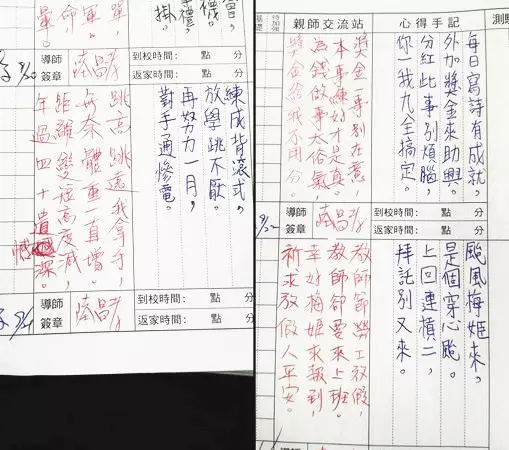 禮。
襪。
掛。
單，
軍。
命
暈。
導師簽章
到校時間： 點 分
返家時間： 點 分
練成背滾式，
放學跳不厭。
再努力一月，
對手通慘電。
跳高跳遠我拿手，
無奈體重一直增。
距離變短高度減，
年過四十遺憾深。
導師簽章
到校時間： 點 分
返家時間： 點 分
待加強
親師交流站
心得手記
測驗
每日寫詩有成就，
外加獎金來助興。
分紅此事別煩腦，
你一我九全搞定。
獎金一事別在意，
本事練好才是真。
為錢做事太俗氣，
獎金給我不用分。
導師簽章
到校時間： 點 分
返家時間： 點 分
颱風梅姬來，
是個穿心颱。
上回連橫二，
拜託別又來。
教師節勞工放假，
教師卻要來上班。
幸好梅姬來報到，
祈求放假人平安。